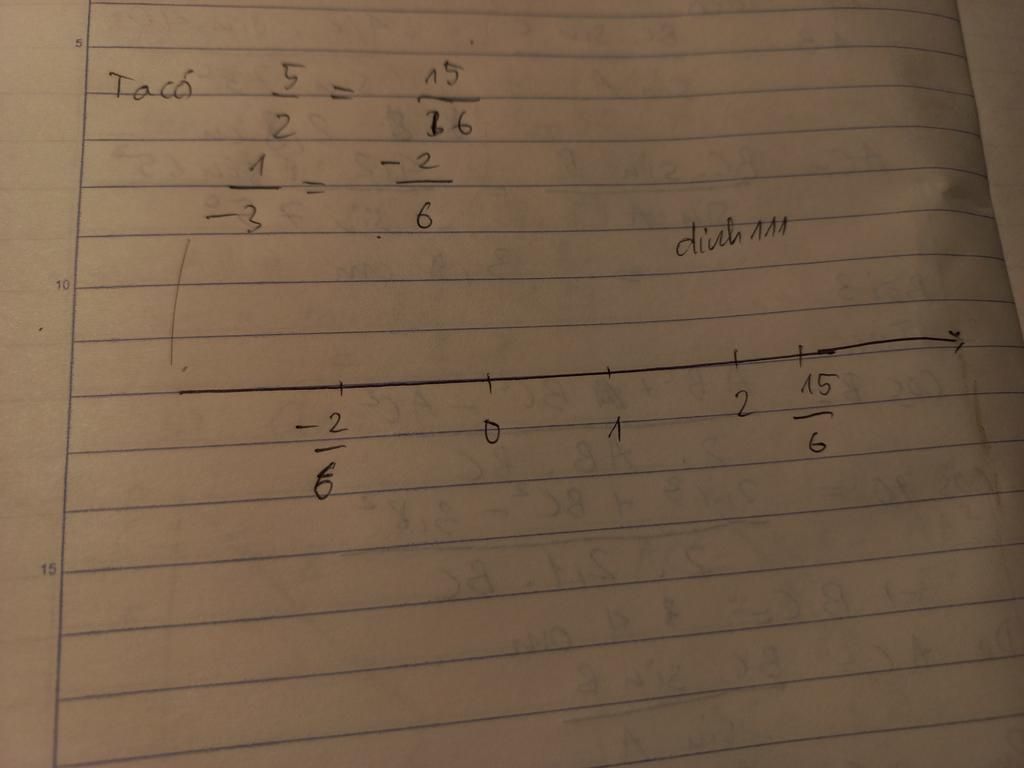 5
Ta có 5/2 = 15/6
1/-3 = -2/6
dinh111
10
-2/6 0 1 2 15/6
15